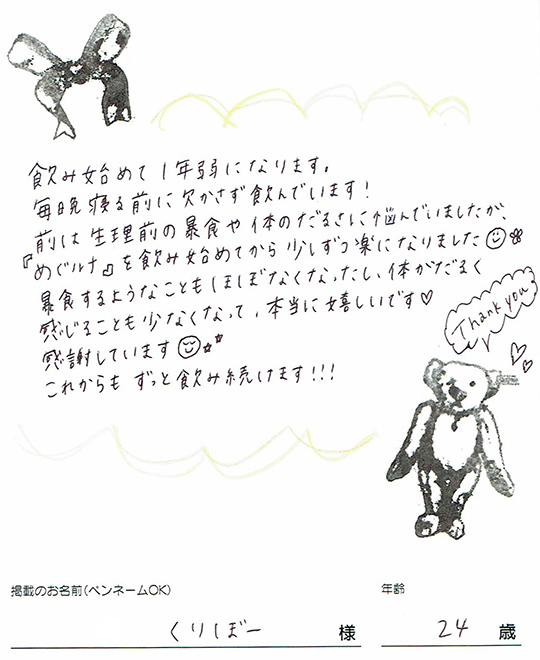 飲み始めて1年弱になります。
毎晩寝る前に欠かさず飲んでいます!
前は生理前の暴食や体のだるさに悩んでいましたが、
『めぐルナ』を飲み始めてから少しずつ楽になりました
暴食するようなこともほぼなくなったし、体がだるく
感じることも少なくなって、本当に嬉しいです♡
感謝しています
これからもずっと飲み続けます!!!
Thank you
掲載のお名前(ペンネームOK)
くりぼー 様
年齢
24 歳